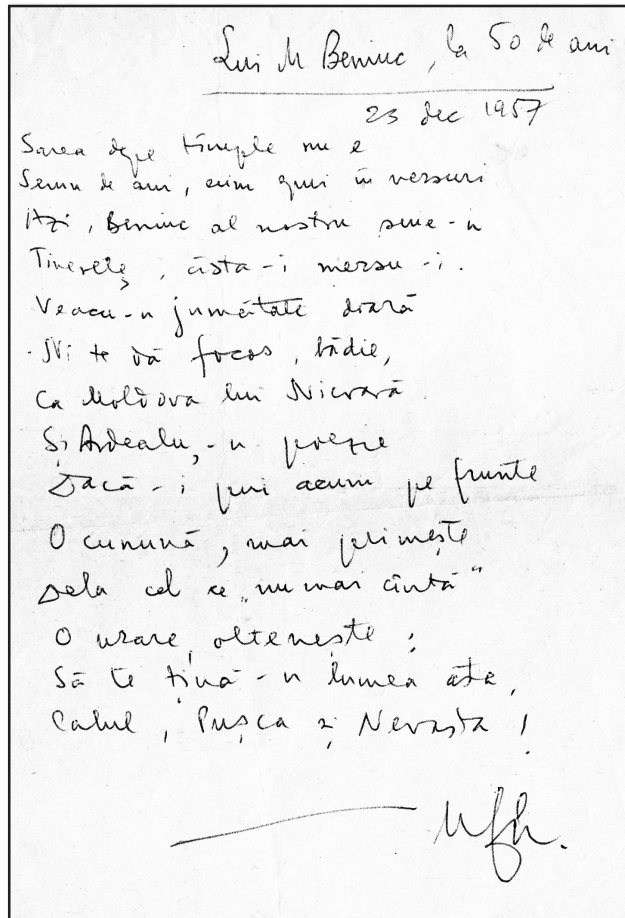 Lui M Beniuc, la 50 de ani
23 dec 1957
Sarea depe tîmple nu e
Semn de ani, cum spui în versuri
Azi, Beniuc al nostru sue-n
Tinerețe, ăsta-i mersu-i.
Veacu-n jumătate doară
Ni te dă focos, bădie,
Ca Moldova lui Nicoară
Și Ardealu,-n poezie
Dacă-i pui acum pe frunte
O cunună, mai primește
Dela cel ce „nu mai cîntă”
O urare, oltenește:
Să te țină-n lumea asta,
Calul, Pușca și Nevasta!